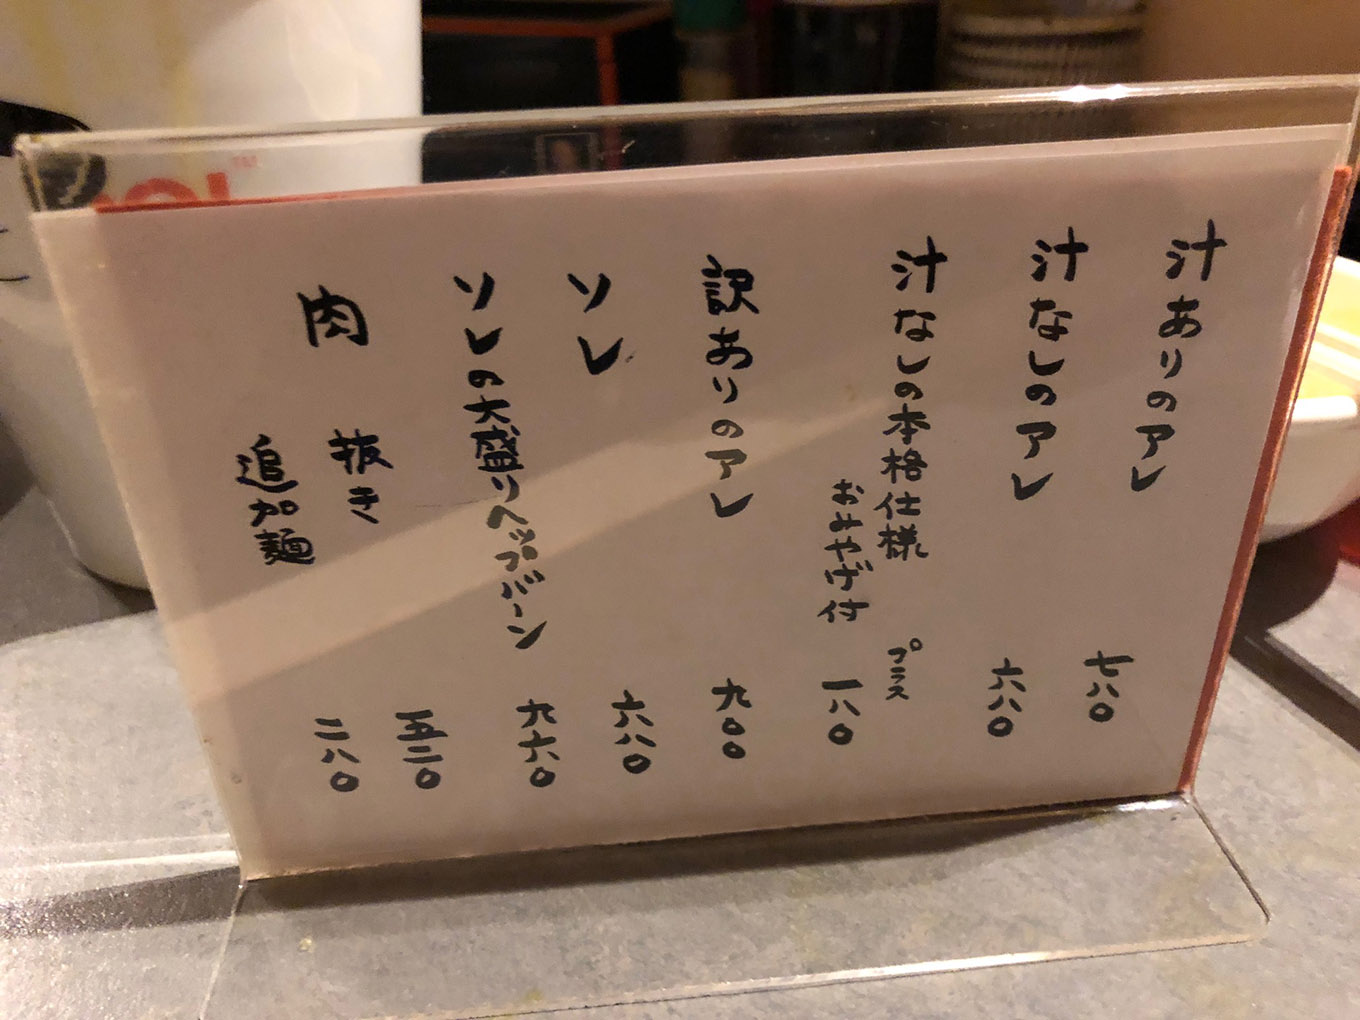 汁ありのアレ 七八〇
汁なしのアレ 六八〇
汁なしの本格仕様 プラス
おみやげ付 一八〇
訳ありのアレ 九〇〇
ソレ 六八〇
ソレの大盛りヘップバーン 九六〇
肉 抜き 五二〇
追加麺 二八〇